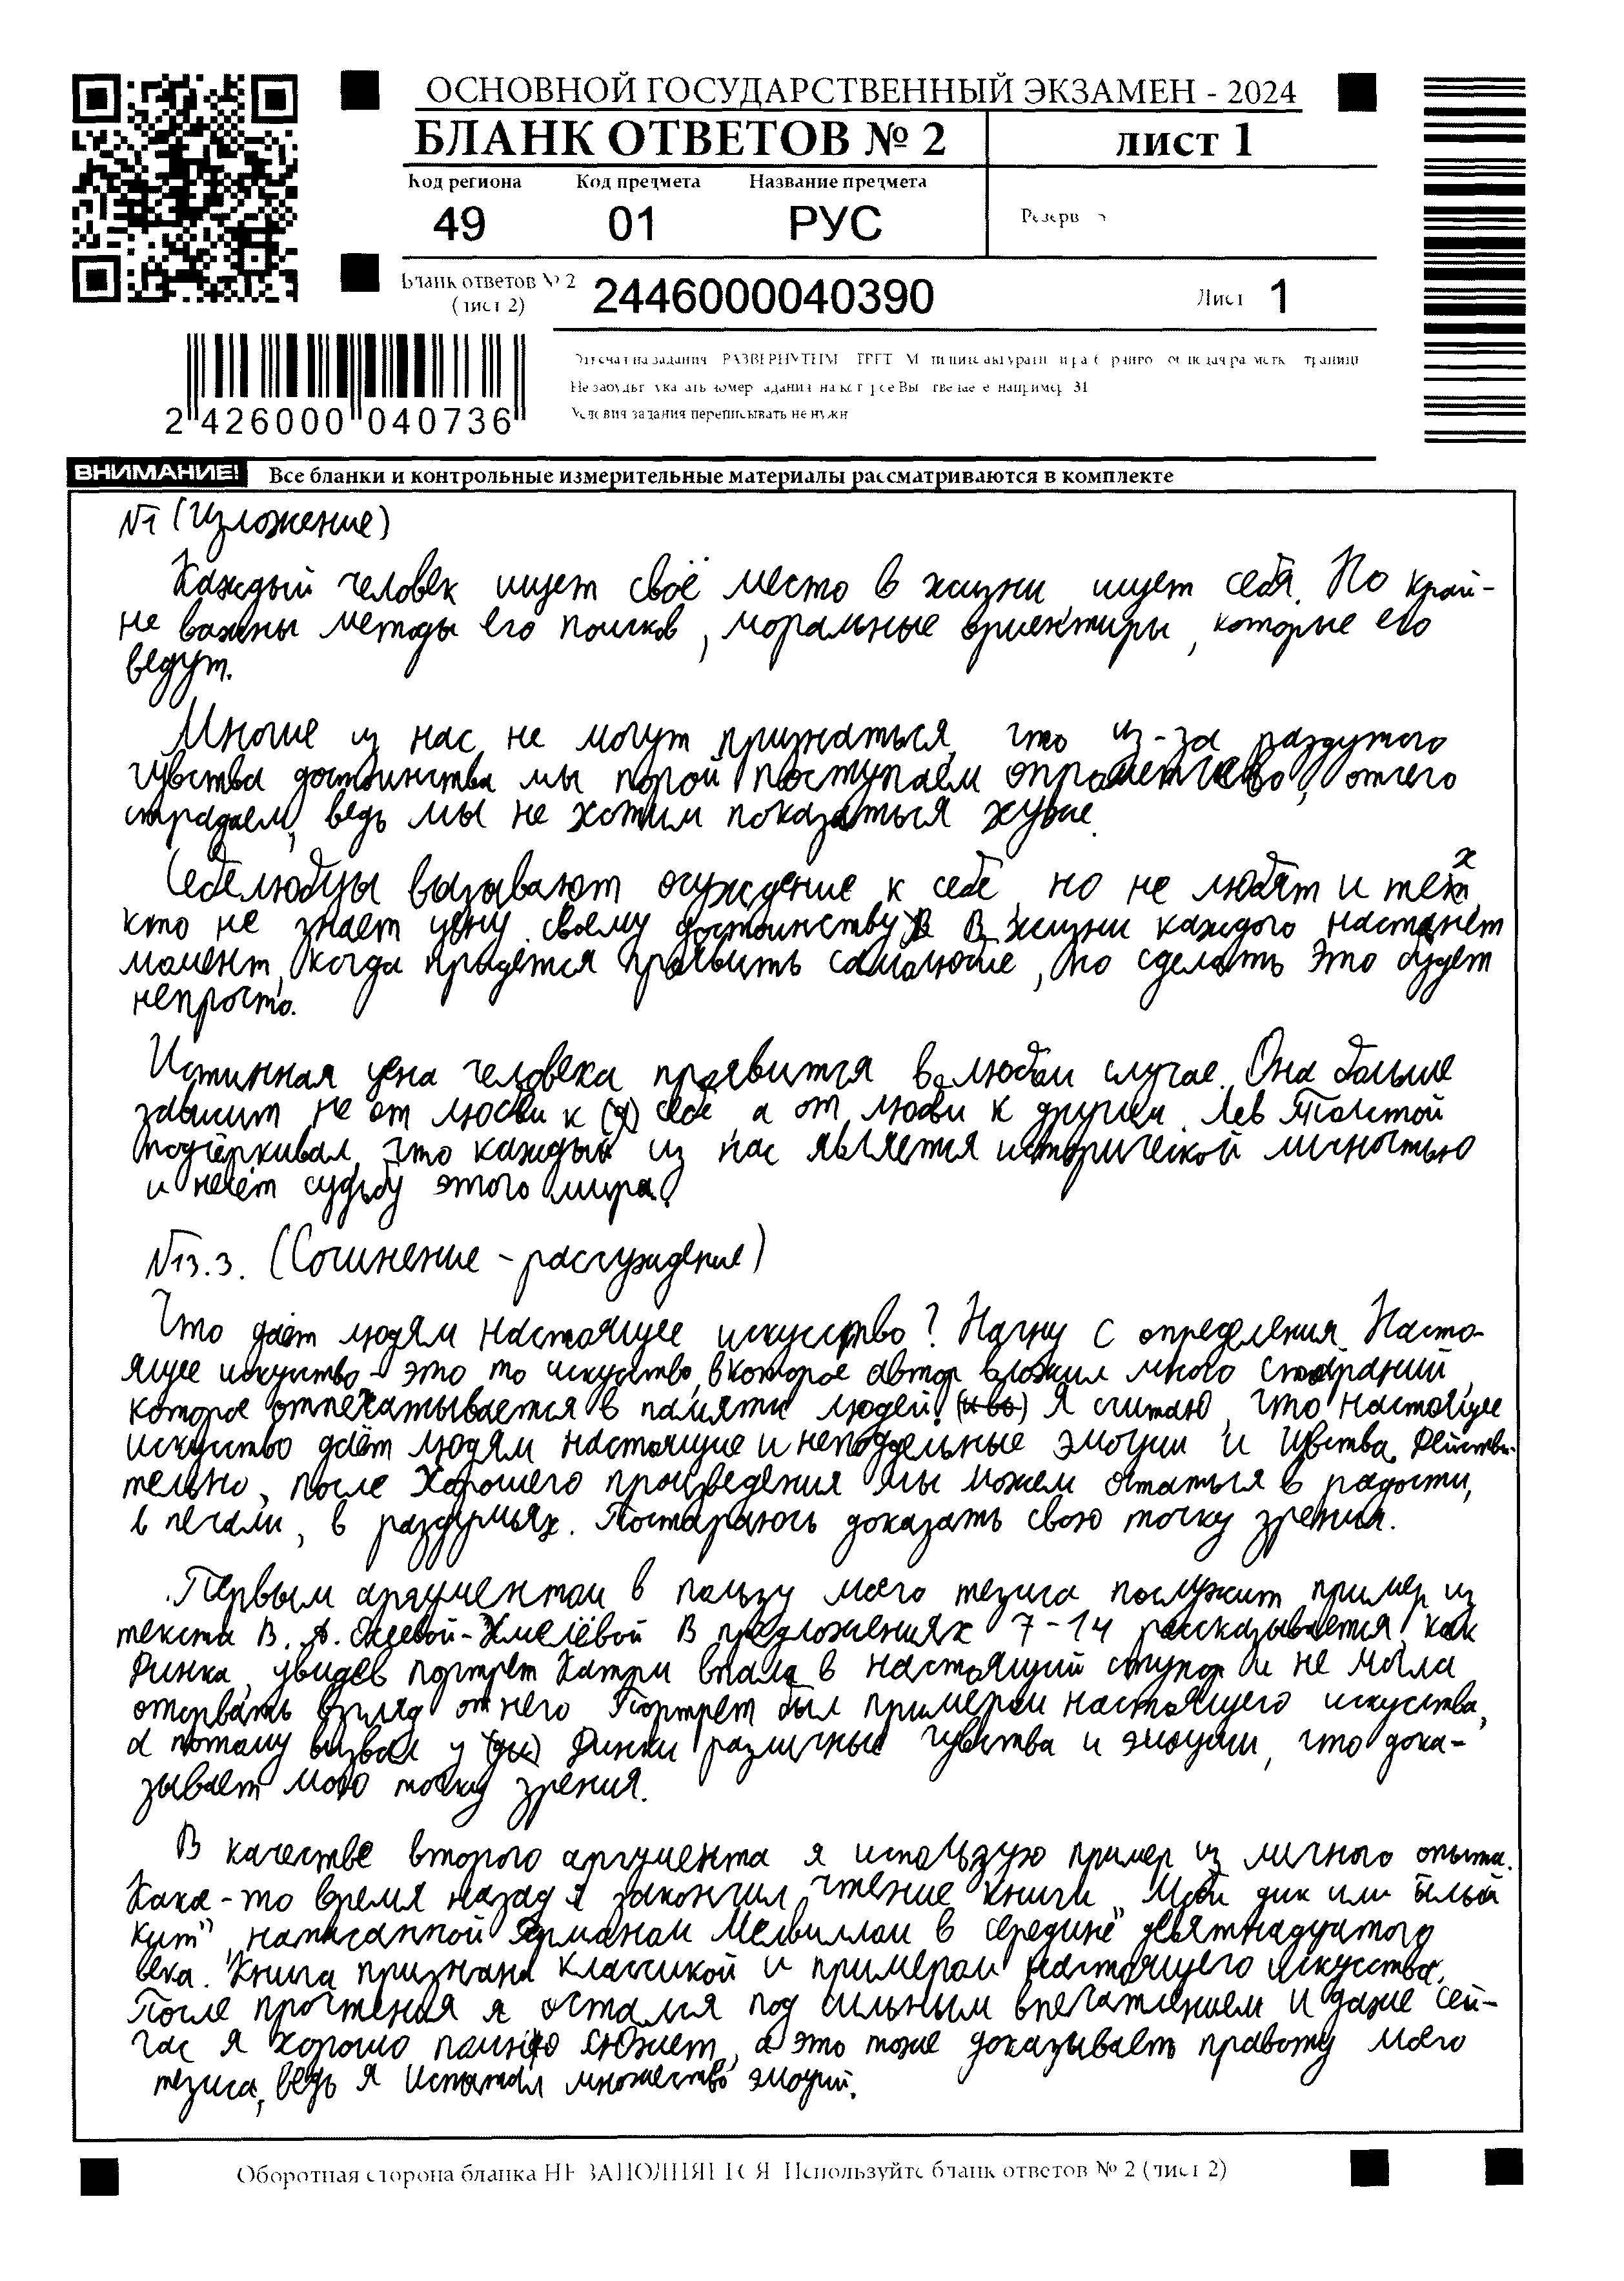 ОСНОВНОЙ ГОСУДАРСТВЕННЫЙ ЭКЗАМЕН - 2024
БЛАНК ОТВЕТОВ № 2
лист 1
Код региона Код предмета Название предмета
49 01 РУС
Резерв
Бланк ответов № 2
(лист 2)
2446000040390
Лист 1
2 426000 040736
Условия задания переписывать не нужн
ВНИМАНИЕ! Все бланки и контрольные измерительные материалы рассматриваются в комплекте
№1 (Изложение)
Каждый человек ищет своё место в жизни ищет себя. Но край-
не важны методы его поисков, моральные ориентиры, которые его
ведут.
Многие из нас не могут признаться, что из-за раздутого
чувства достоинства мы порой поступаем опрометчиво, отчего
страдаем, ведь мы не хотим показаться хуже.
Себелюбцы вызывают осуждение к себе, но не любят и тех,
кто не знает цену своему достоинству. В жизни каждого настанет
момент, когда придётся проявить самолюбие, но сделать это будет
непросто.
Истинная цена человека проявится в любом случае. Она больше
зависит не от любви к себе, а от любви к другим. Лев Толстой
подчёркивал, что каждый из нас является исторической личностью
и несёт судьбу этого мира.
№13.3. (Сочинение - рассуждение)
Что даёт людям настоящее искусство? Начну с определения. Насто-
ящее искусство - это то искусство, в которое автор вложил много стараний,
которое отпечатывается в памяти людей. Я считаю, что настоящее
искусство даёт людям настоящие и неподдельные эмоции и чувства. Действи-
тельно, после хорошего произведения мы можем остаться в радости,
в печали, в раздумьях. Постараюсь доказать свою точку зрения.
Первым аргументом в пользу моего тезиса послужит пример из
текста В. А. Осеевой-Хмелёвой. В предложениях 7-14 рассказывается, как
Динка, увидев портрет Катри впала в настоящий ступор и не могла
оторвать взгляд от него. Портрет был примером настоящего искусства,
а потому вызвал у Динки различные чувства и эмоции, что дока-
зывает мою точку зрения.
В качестве второго аргумента я использую пример из личного опыта.
Кака-то время назад я закончил чтение книги „Моби дик или белый
кит", написанной Германом Мелвиллом в середине девятнадцатого
века. Книга признана классикой и примером настоящего искусства.
После прочтения я остался под сильным впечатлением и даже сей-
час я хорошо помню сюжет, а это тоже доказывает правоту моего
тезиса, ведь я испытал множество эмоций.
Оборотная сторона бланка НЕ ЗАПОЛНЯЕТСЯ. Используйте бланк ответов № 2 (лист 2)